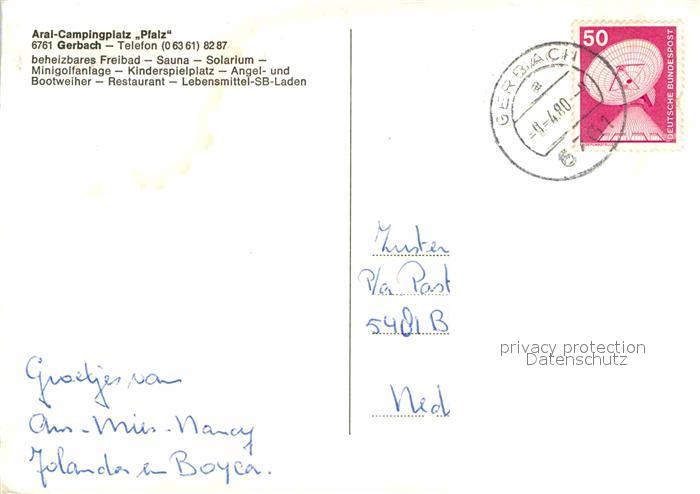 Aral-Campingplatz „Pfalz“
6761 Gerbach — Telefon (0 63 61) 82 87
beheizbares Freibad — Sauna — Solarium —
Minigolfanlage — Kinderspielplatz — Angel- und
Bootweiher — Restaurant — Lebensmittel-SB-Laden
GERBACH
a
4.80
50
DEUTSCHE BUNDESPOST
Zuster
P/a Past
5401 B
Ned
privacy protection
Datenschutz
Groetjes van
Ans-Mies-Nancy
Jolanda en Boyca.